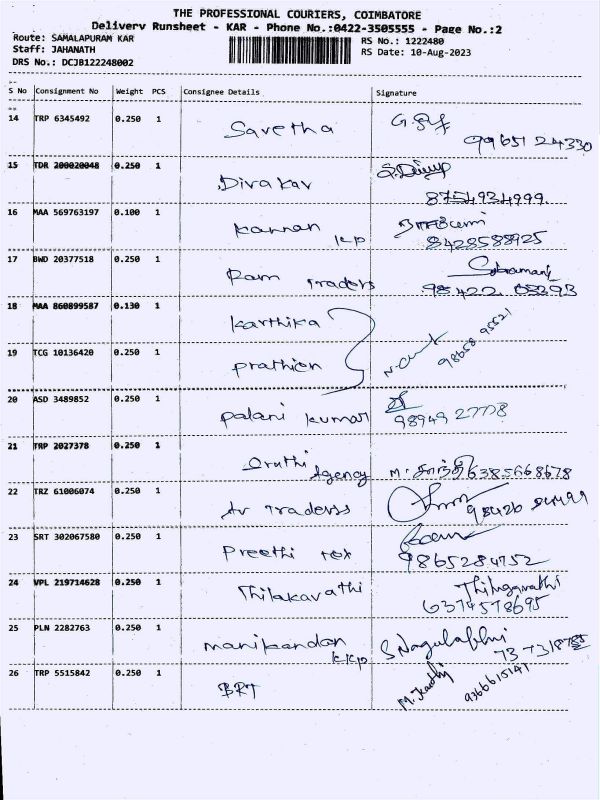 THE PROFESSIONAL COURIERS, COIMBATORE
Delivery Runsheet - KAR - Phone No.:0422-3505555 - Page No.:2
Route: SAMALAPURAM KAR
RS No.: 1222480
Staff: JAHANATH
RS Date: 10-Aug-2023
DRS No.: DCJB122248002
S No Consignment No Weight PCS Consignee Details Signature
14 TRP 6345492 0.250 1 Savetha
99651 24330
15 TDR 200020048 0.250 1 Divakar
8754924999
16 MAA 569763197 0.100 1 Kannan
KP 8428588925
17 BWD 20377518 0.250 1 Ram Traders
98422 05393
18 MAA 860899587 0.130 1 Karthika
98658 95521
19 TCG 10136420 0.250 1 Prathien
20 ASD 3489852 0.250 1 Palani Kumar
98949 27778
21 TRP 2027378 0.250 1 Sruthi
Agency M. சாந்தி 6385668678
22 TRZ 61006074 0.250 1 Av Traderss
98420
23 SRT 302067580 0.250 1 Preethi tex
9865284752
24 VPL 219714628 0.250 1 Thilakavathi
Thilagavathi
6374578695
25 PLN 2282763 0.250 1 Manikandan
KKP
26 TRP 5515842 0.250 1 BRT
9366615141